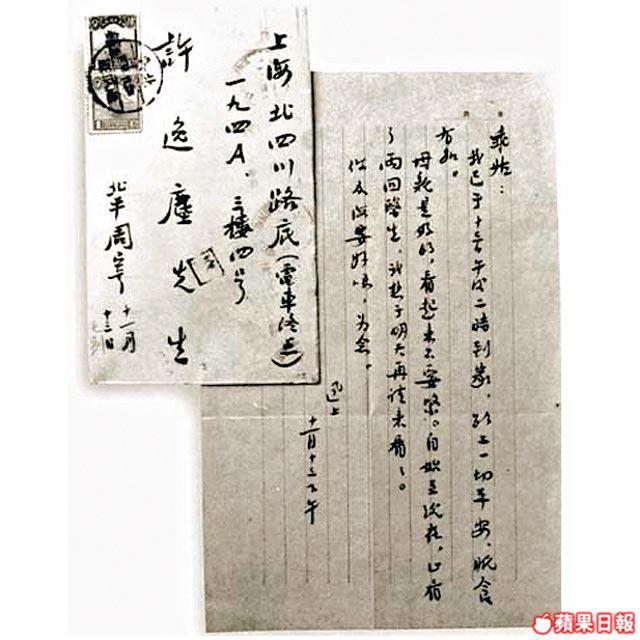 上海北四川路底(電車終点)
一九四A、三樓四号
許逸塵先生
北平周寄
十一月
十三日
乖姑：
我已于十三日午后二時到家，路上一切平安，眠食
有加。
母親是好的，看起来不要緊。自始至現在，止看
了两回醫生，我想于明天再请来看〻。
你及海嬰好嗎，为念。
迅上
十一月十三下午
蘋果日報